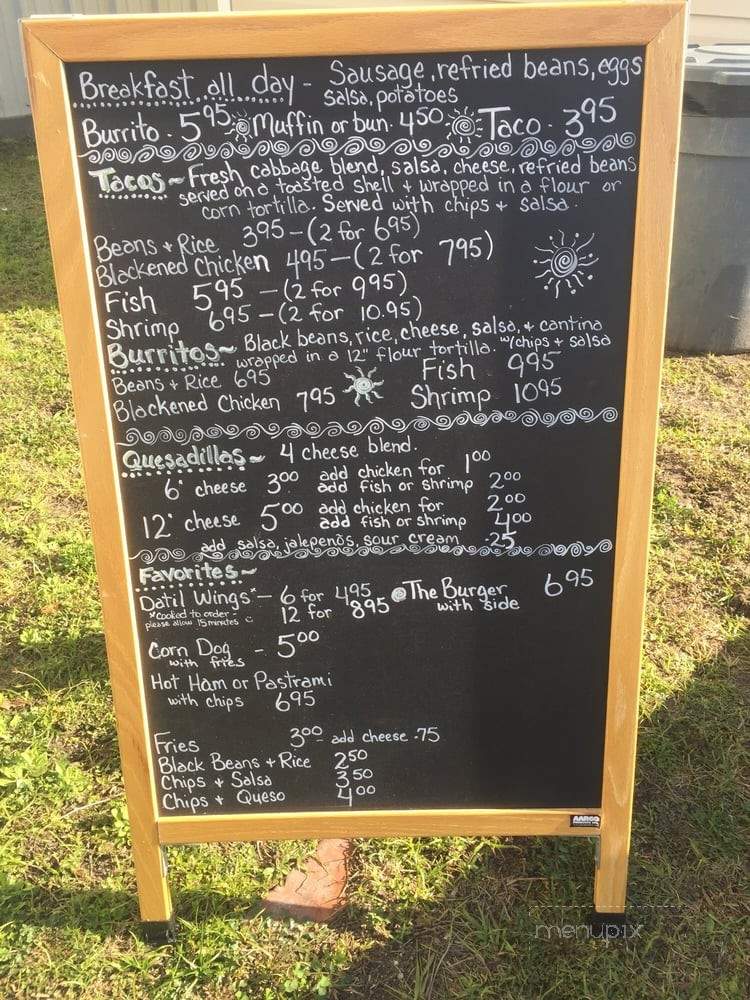 Breakfast all day - Sausage, refried beans, eggs
salsa, potatoes
Burrito - 5 95 Muffin or bun - 4 50 Taco - 3 95
Tacos ~ Fresh cabbage blend, salsa, cheese, refried beans
served on a toasted shell + wrapped in a flour or
corn tortilla. Served with chips + salsa.
Beans + Rice 3 95 - (2 for 6 95)
Blackened Chicken 4 95 - (2 for 7 95)
Fish 5 95 - (2 for 9 95)
Shrimp 6 95 - (2 for 10.95)
Burritos ~ Black beans, rice, cheese, salsa, + cantina
wrapped in a 12" flour tortilla. w/chips + salsa
Beans + Rice 6 95 Fish 9 95
Blackened Chicken 7 95 Shrimp 10 95
Quesadillas ~ 4 cheese blend.
6" cheese 3 00 add chicken for 1 00
add fish or shrimp 2 00
12" cheese 5 00 add chicken for 2 00
add fish or shrimp 4 00
add salsa, jalepeños, sour cream .25
Favorites ~
Datil Wings* - 6 for 4 95 The Burger 6 95
*cooked to order - 12 for 8 95 with side
please allow 15 minutes
Corn Dog - 5 00
with fries
Hot Ham or Pastrami
with chips 6 95
Fries 3 00 - add cheese .75
Black Beans + Rice 2 50
Chips + Salsa 3 50
Chips + Queso 4 00
AARCO
menupix